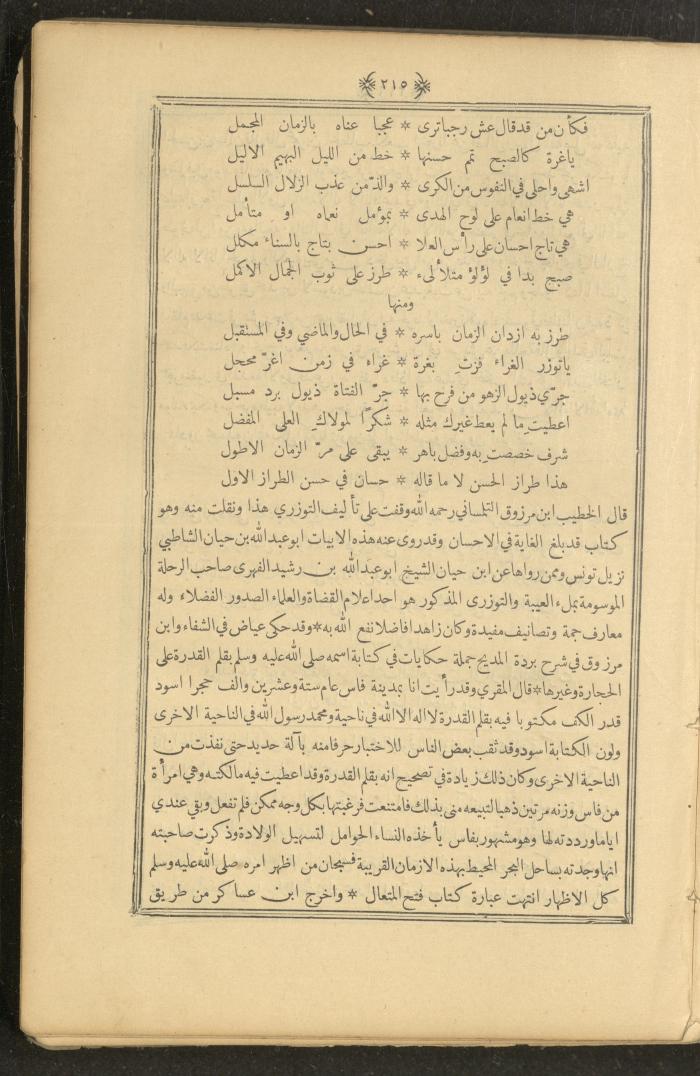 ٢١٥
فكأن من قد قال عش رجبا ترى * عجبا عناه بالزمان المجمل
ياغرة كالصبح تم حسنها * خط من الليل البهيم الاليل
اشهى واحلى في النفوس من الكرى * والذّ من عذب الزلال السلسل
هي خط انعام على لوح الهدى * بمؤمل نعماه او متأمل
هي تاج احسان على رأس العلا * احسن بتاج بالسناء مكلل
صبح بدا في لؤلؤ متلألىء * طرز على ثوب الجمال الاكمل
ومنها
طرز به ازدان الزمان باسره * في الحال والماضي وفي المستقبل
ياتوزر الغراء فزتِ بغرة * غراء في زمن اغرّ محجل
جرّي ذيول الزهو من فرح بها * جرّ الفتاة ذيول برد مسبل
اعطيتِ ما لم يعط غيرك مثله * شكرًا لمولاكِ العلى المفضل
شرف خصصتِ به وفضل باهر * يبقى على مرّ الزمان الاطول
هذا طراز الحسن لا ما قاله * حسان في حسن الطراز الاول
قال الخطيب ابن مرزوق التلمساني رحمه الله وقفت على تأليف التوزري هذا ونقلت منه وهو
كتاب قد بلغ الغاية في الاحسان وقد روى عنه هذه الابيات ابو عبد الله بن حيان الشاطبي
نزيل تونس وممن رواها عن ابن حيان الشيخ ابو عبد الله بن رشيد الفهرى صاحب الرحلة
الموسومة بملء العيبة والتوزرى المذكور هو احد اعلام القضاة والعلماء الصدور الفضلاء وله
معارف جمة وتصانيف مفيدة وكان زاهدا فاضلا نفع الله به * وقد حكى عياض في الشفاء وابن
مرزوق في شرح بردة المديح جملة حكايات في كتابة اسمه صلى الله عليه وسلم بقلم القدرة على
الحجارة وغيرها * قال المقري وقد رأيت انا بمدينة فاس عام ستة وعشرين والف حجرا اسود
قدر الكف مكتوبا فيه بقلم القدرة لا اله الا الله في ناحية ومحمد رسول الله في الناحية الاخرى
ولون الكتابة اسود وقد ثقب بعض الناس للاختبار حرفا منه بآلة حديد حتى نفذت من
الناحية الاخرى وكان ذلك زيادة في تصحيح انه بقلم القدرة وقد اعطيت فيه مالكته وهي امرأة
من فاس وزنه مرتين ذهبا لتبيعه منى بذلك فامتنعت فرغبتها بكل وجه ممكن فلم تفعل وبقي عندي
اياما ورددته لها وهو مشهور بفاس يأخذه النساء الحوامل لتسهيل الولادة وذكرت صاحبته
انها وجدته بساحل البحر المحيط بهذه الازمان القريبة فسبحان من اظهر امره صلى الله عليه وسلم
كل الاظهار انتهت عبارة كتاب فتح المتعال * واخرج ابن عساكر من طريق